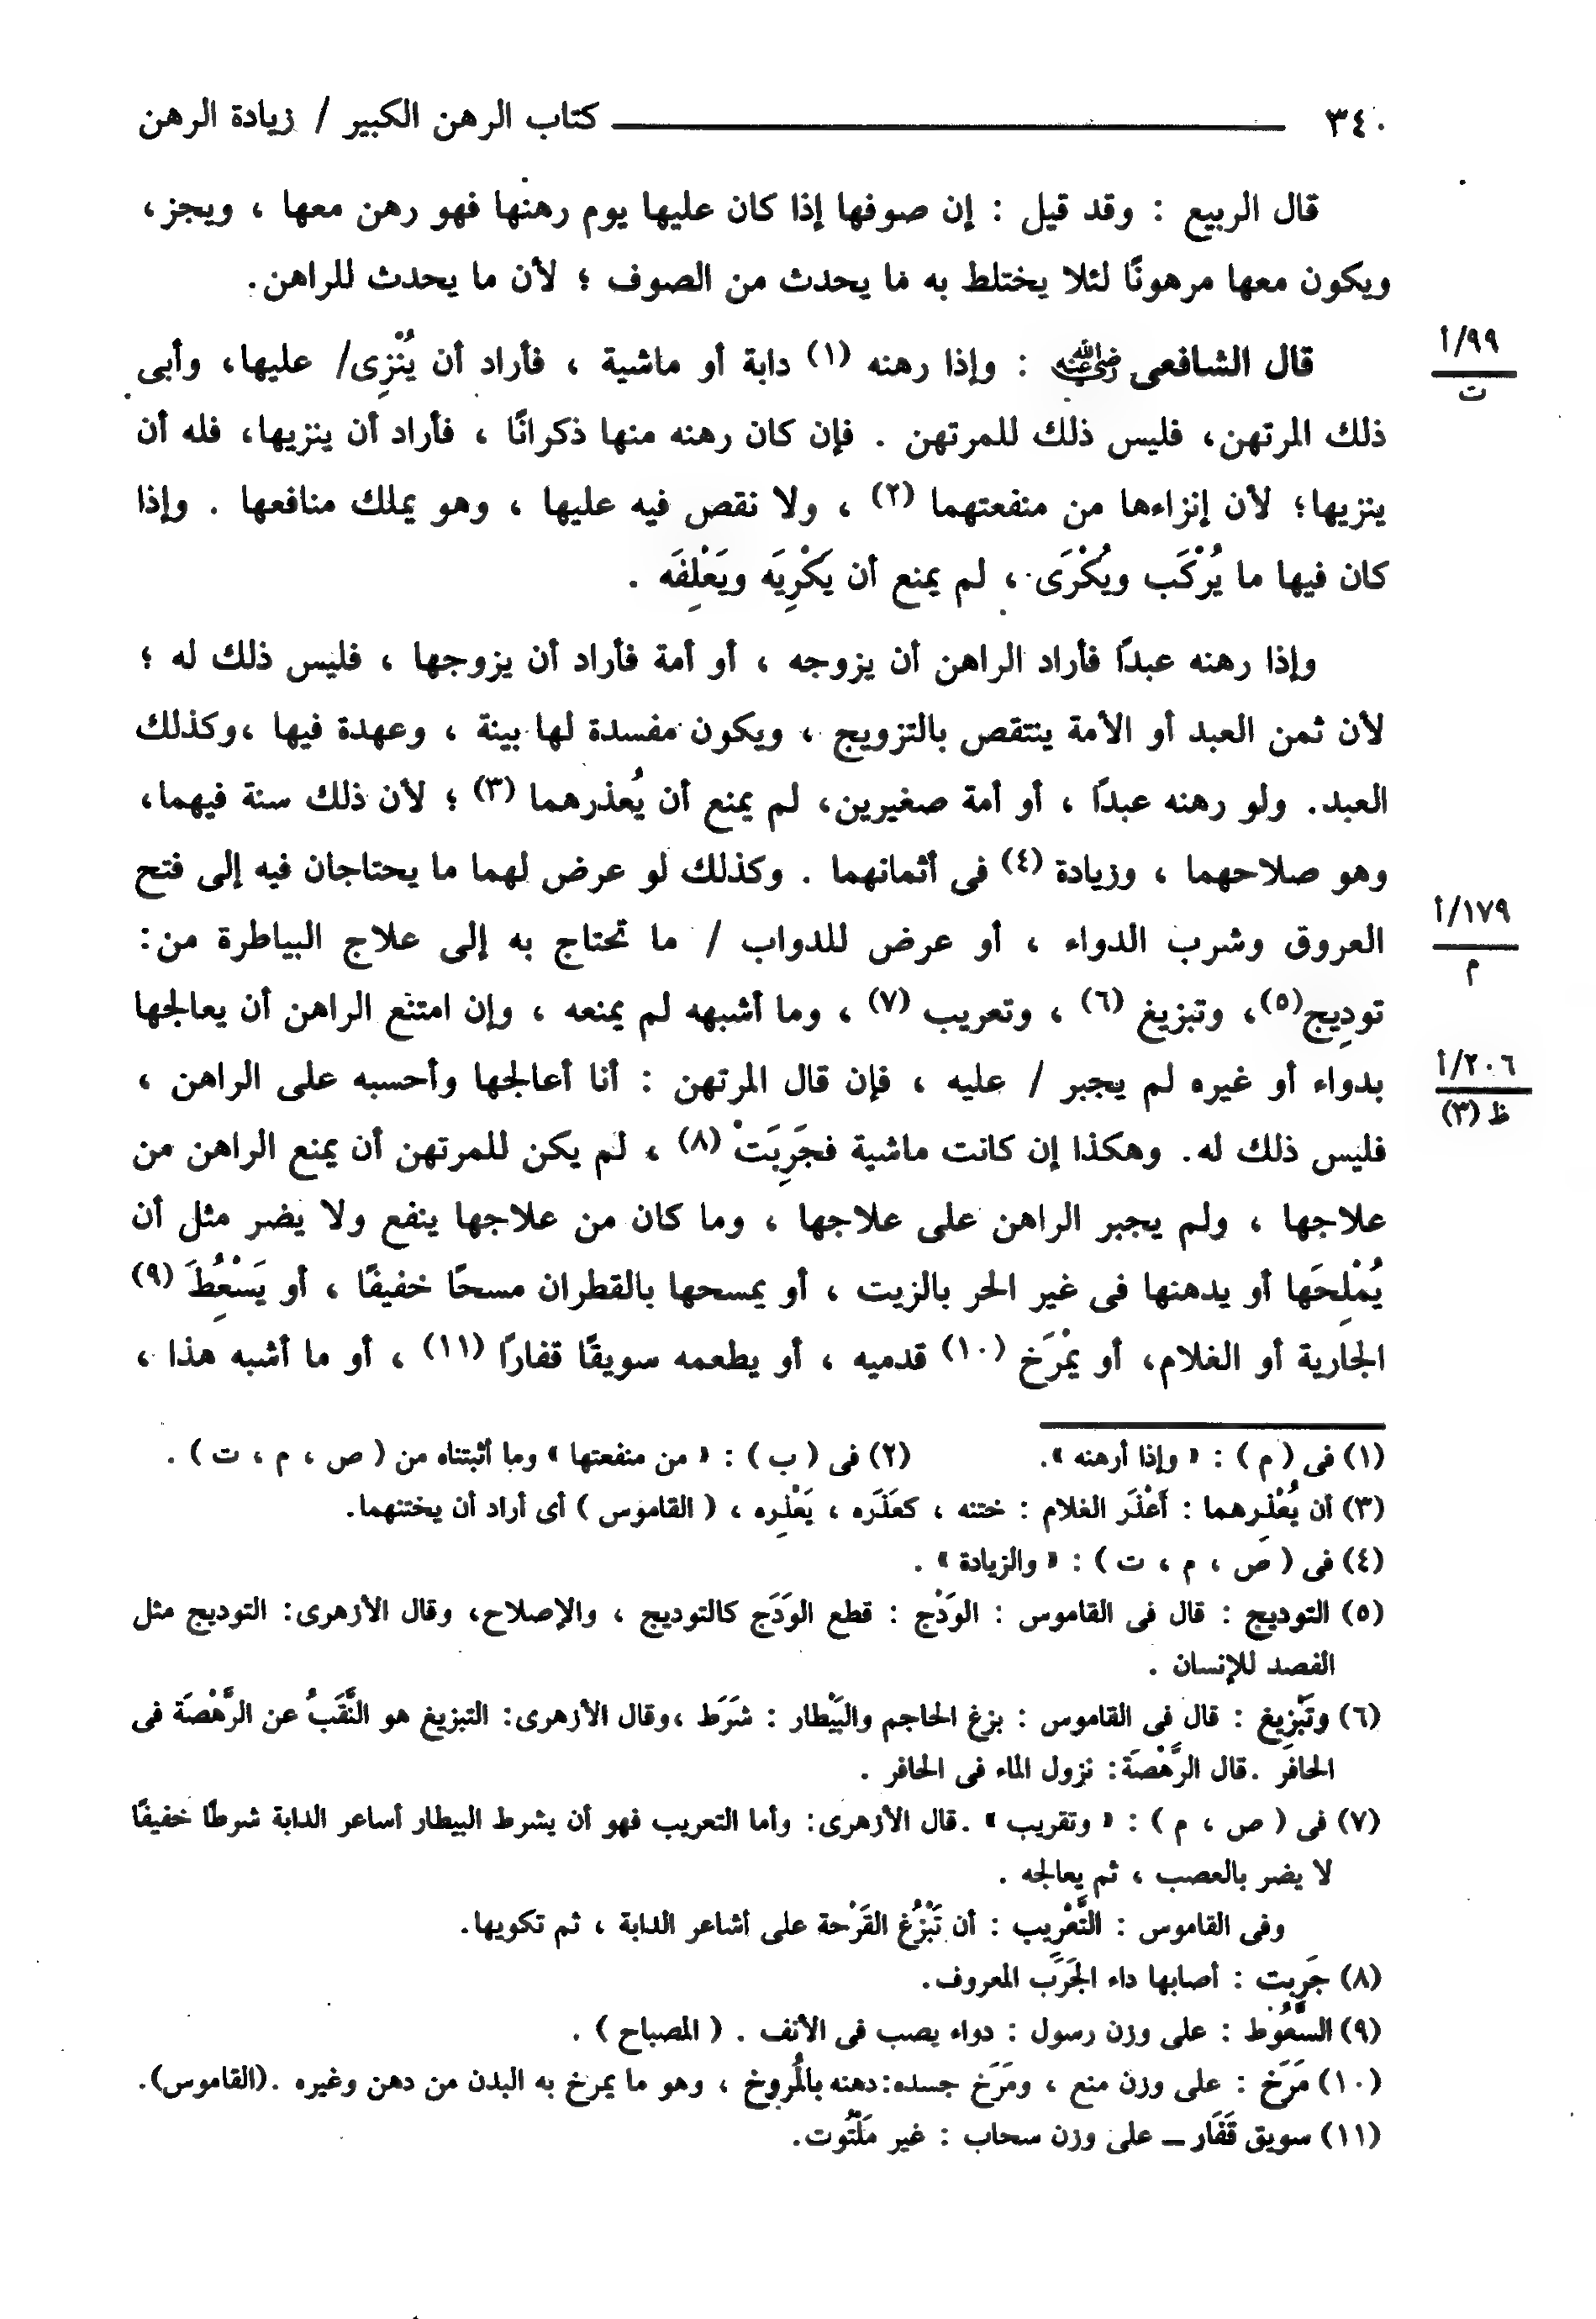 ٣٤٠ كتاب الرهن الكبير / زيادة الرهن
قال الربيع : وقد قيل : إن صوفها إذا كان عليها يوم رهنها فهو رهن معها ، ويجز ،
ويكون معها مرهونًا لئلا يختلط به ما يحدث من الصوف ؛ لأن ما يحدث للراهن.
قال الشافعى رضي الله عنه : وإذا رهنه (١) دابة أو ماشية ، فأراد أن يُنْزِى/ عليها، وأبى
٩٩/أ
ت
ذلك المرتهن، فليس ذلك للمرتهن . فإن كان رهنه منها ذكرانًا ، فأراد أن ينزيها، فله أن
ينزيها؛ لأن إنزاءها من منفعتهما (٢) ، ولا نقص فيه عليها ، وهو يملك منافعها . وإذا
كان فيها ما يُرْكَب ويُكْرَى ، لم يمنع أن يَكْرِيَه ويَعْلِفَه .
وإذا رهنه عبدًا فأراد الراهن أن يزوجه ، أو أمة فأراد أن يزوجها ، فليس ذلك له ؛
لأن ثمن العبد أو الأمة ينتقص بالتزويج ، ويكون مفسدة لها بينة ، وعهدة فيها ،وكذلك
العبد. ولو رهنه عبدًا ، أو أمة صغيرين، لم يمنع أن يُعذرهما (٣) ؛ لأن ذلك سنة فيهما،
وهو صلاحهما ، وزيادة (٤) فى أثمانهما . وكذلك لو عرض لهما ما يحتاجان فيه إلى فتح
العروق وشرب الدواء ، أو عرض للدواب / ما تحتاج به إلى علاج البياطرة من:
١٧٩/أ
م
تودِيج(٥)، وتبزيغ (٦) ، وتعريب (٧) ، وما أشبهه لم يمنعه ، وإن امتنع الراهن أن يعالجها
بدواء أو غيره لم يجبر / عليه ، فإن قال المرتهن : أنا أعالجها وأحسبه على الراهن ،
٢٠٦/أ
ظ (٣)
فليس ذلك له. وهكذا إن كانت ماشية فجَرِبَتْ (٨) ، لم يكن للمرتهن أن يمنع الراهن من
علاجها ، ولم يجبر الراهن على علاجها ، وما كان من علاجها ينفع ولا يضر مثل أن
يُمْلِحَها أو يدهنها فى غير الحر بالزيت ، أو يمسحها بالقطران مسحًا خفيفًا ، أو يَسْعُِطَ (٩)
الجارية أو الغلام، أو يمْرَخ (١٠) قدميه ، أو يطعمه سويقًا قفارًا (١١) ، أو ما أشبه هذا ،
(١) فى ( م ) : « وإذا أرهنه ». (٢) فى ( ب ) : « من منفعتها » وما أثبتناه من ( ص ، م ، ت ) .
(٣) أن يُعْذِرهما : أَعْذَر الغلام : ختنه ، كعَذَره ، يَعْذِره ، ( القاموس ) أى أراد أن يختنهما.
(٤) فى ( ص ، م ، ت ) : « والزيادة » .
(٥) التوديج : قال فى القاموس : الوَدْج : قطع الوَدَج كالتوديج ، والإصلاح، وقال الأزهرى: التوديج مثل
الفصد للإنسان .
(٦) وتَبْزِيغ : قال فى القاموس : بزغ الحاجم والبَيْطار : شَرَط ،وقال الأزهرى: التبزيغ هو النَّقَبُ عن الرَّهْصَة فى
الحافر .قال الرَّهْصَة: نزول الماء فى الحافر .
(٧) فى ( ص ، م ) : « وتقريب » .قال الأزهرى: وأما التعريب فهو أن يشرط البيطار أساعر الدابة شرطًا خفيفًا
لا يضر بالعصب ، ثم يعالجه .
وفى القاموس : التَّعْرِيب : أن تَبْزُغ القَرْحة على أشاعر الدابة ، ثم تكويها.
(٨) جَرِبت : أصابها داء الجَرَب المعروف.
(٩) السَّعُوط : على وزن رسول : دواء يصب فى الأنف . ( المصباح ) .
(١٠) مَرَخ : على وزن منع ، ومَرَخ جسده:دهنه بالمُروخ ، وهو ما يمرخ به البدن من دهن وغيره .(القاموس).
(١١) سويق قَفَار ــ على وزن سحاب : غير مَلْتُوت.